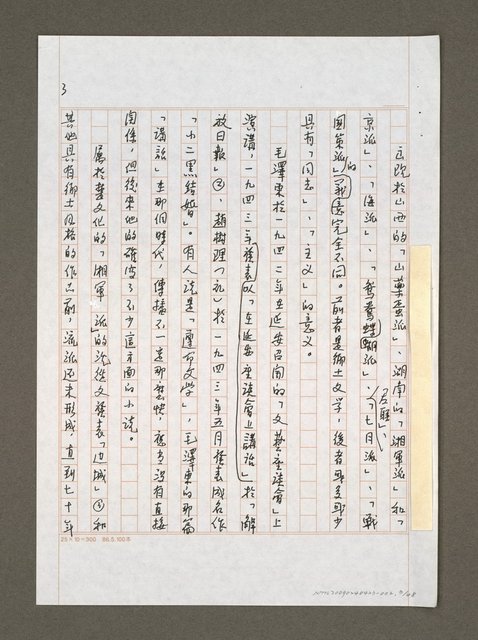 3
出現於山西的「山藥蛋派」、湖南的「湘軍派」和「
京派」、「海派」、「鴛鴦蝴蝶派」、「左聯」、「七月派」、「戰
國策派」的意完全不同。前者是鄉土文學,後者都多少
具有「同志」、「主義」的意義。
毛澤東於一九四二年在延安召開的「文藝座談會」上
演講,一九四三年發表以「在延安座談會上講話」於「解
放日報」②,趙樹理於一九四三年五月發表成名作
「小二黑結婚」。有人說是「文學」,毛澤東的那篇
「講話」在那個時代,傳播不一定那麼快,應該沒有直接
關係,但後來他的確寫了不少這方面的小說。
屬於楚文化的「湘軍」派的沈從文發表「边城」③和
其他具有鄉土風格的作品前,流派還未形成,直到七十年
25×10=300 86.5.100本